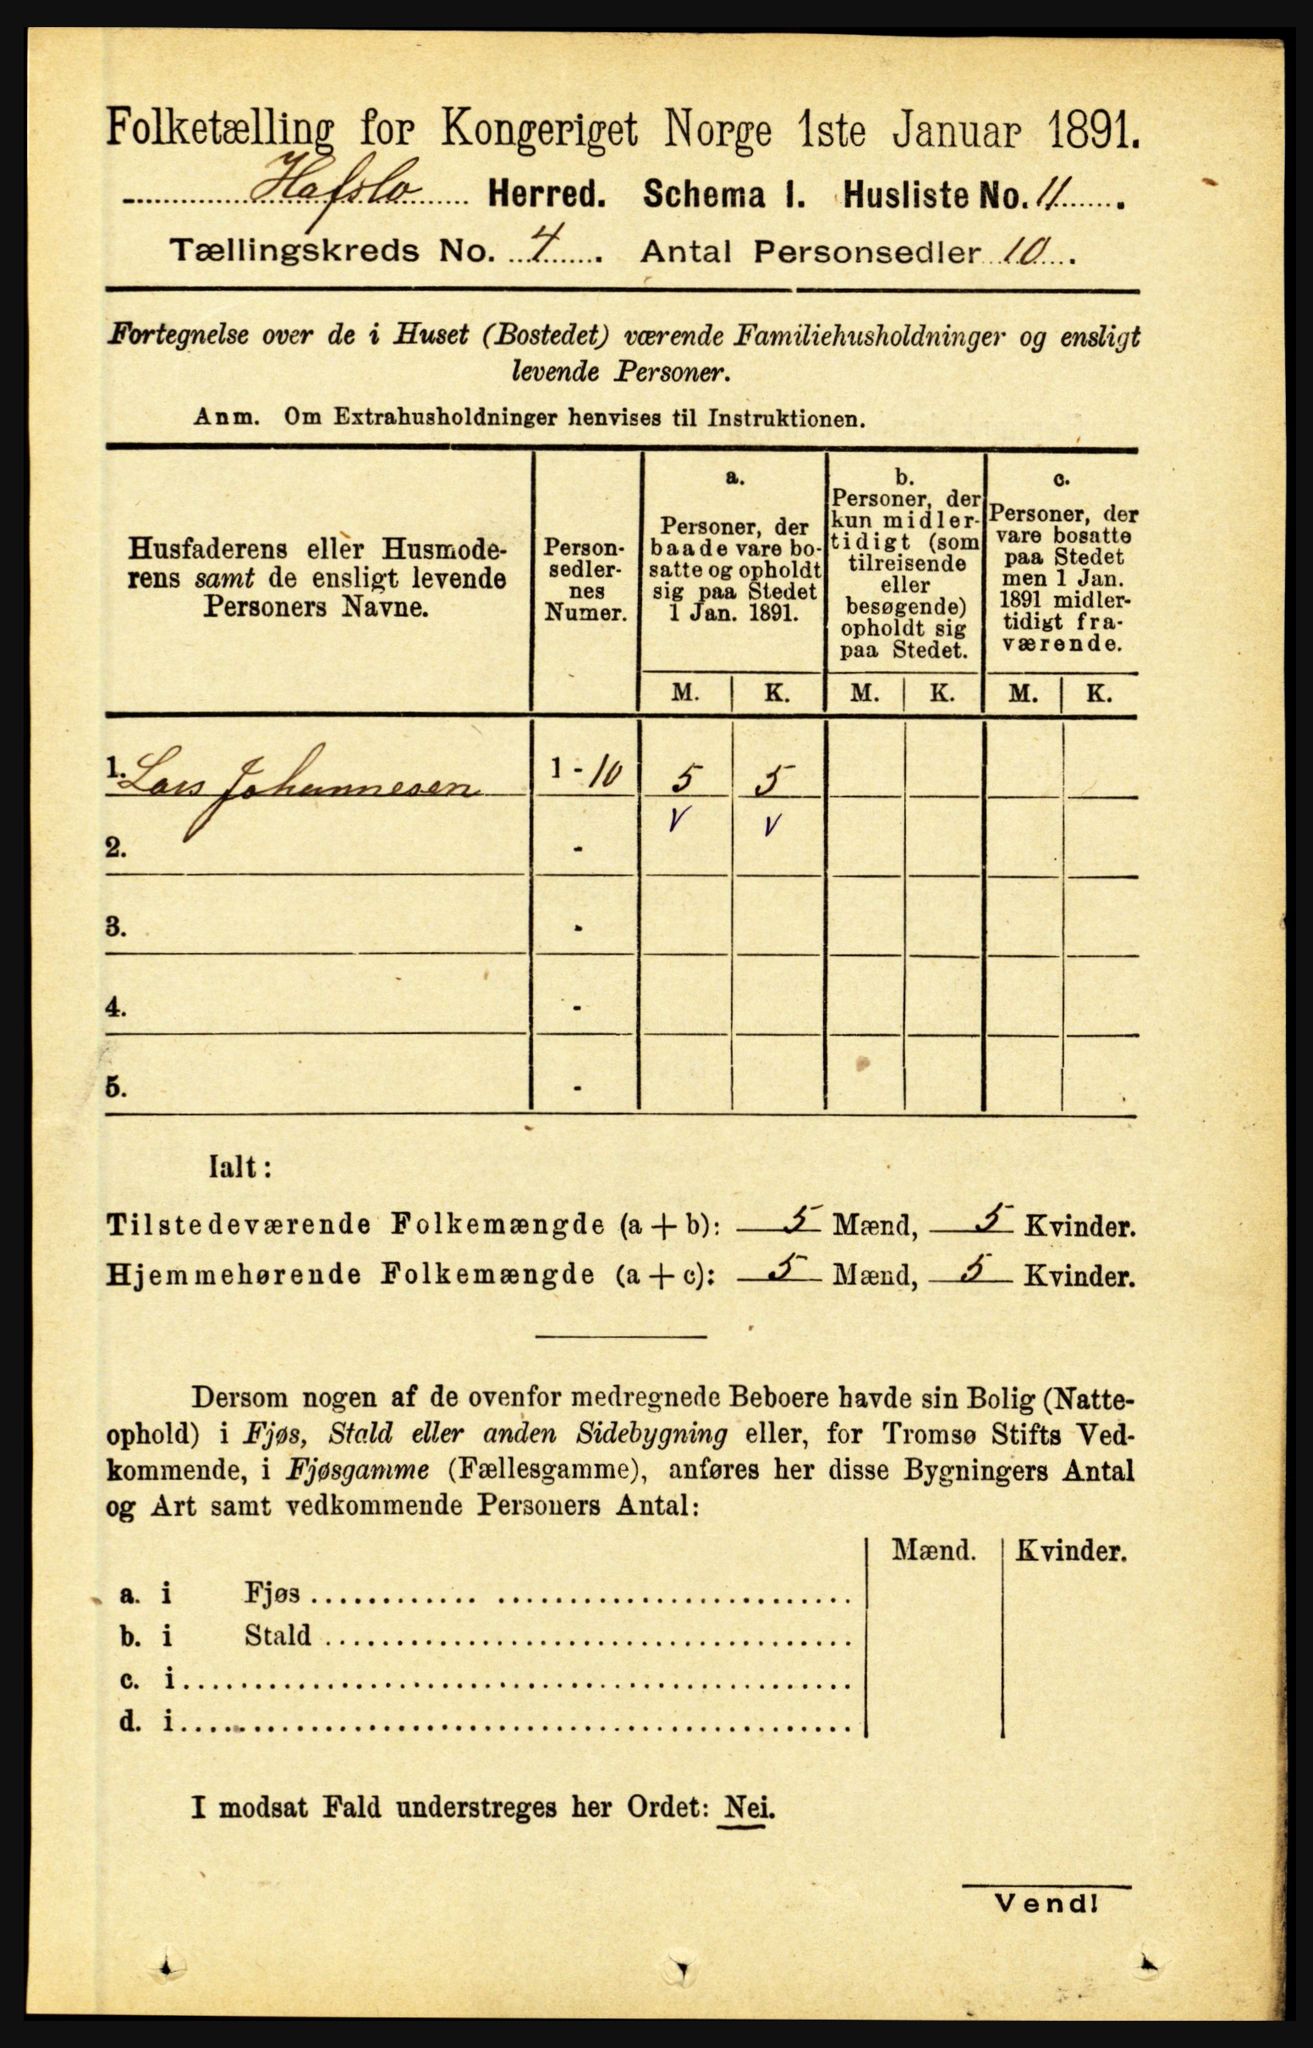 Folketælling for Kongeriget Norge 1ste Januar 1891.
Hafslo Herred. Schema I. Husliste No. 11.
Tællingskreds No. 4. Antal Personsedler 10.
Fortegnelse over de i Huset (Bostedet) værende Familiehusholdninger og ensligt
levende Personer.
Anm. Om Extrahusholdninger henvises til Instruktionen.
Husfaderens eller Husmode-
rens samt de ensligt levende
Personers Navne.
Person-
sedler-
nes
Numer.
a.
Personer, der
baade vare bo-
satte og opholdt
sig paa Stedet
1 Jan. 1891.
b.
Personer, der
kun midler-
tidigt (som
tilreisende
eller
besøgende)
opholdt sig
paa Stedet.
c.
Personer, der
vare bosatte
paa Stedet
men 1 Jan.
1891 midler-
tidigt fra-
værende.
M. K. M. K. M. K.
1. Lars Johannesen 1 - 10 5 5
v v
2. -
3. -
4. -
5. -
Ialt:
Tilstedeværende Folkemængde (a + b): 5 Mænd, 5 Kvinder.
Hjemmehørende Folkemængde (a + c): 5 Mænd, 5 Kvinder.
Dersom nogen af de ovenfor medregnede Beboere havde sin Bolig (Natte-
ophold) i Fjøs, Stald eller anden Sidebygning eller, for Tromsø Stifts Ved-
kommende, i Fjøsgamme (Fællesgamme), anføres her disse Bygningers Antal
og Art samt vedkommende Personers Antal:
Mænd. Kvinder.
a. i Fjøs
b. i Stald
c. i
d. i
I modsat Fald understreges her Ordet: Nei.
Vend!